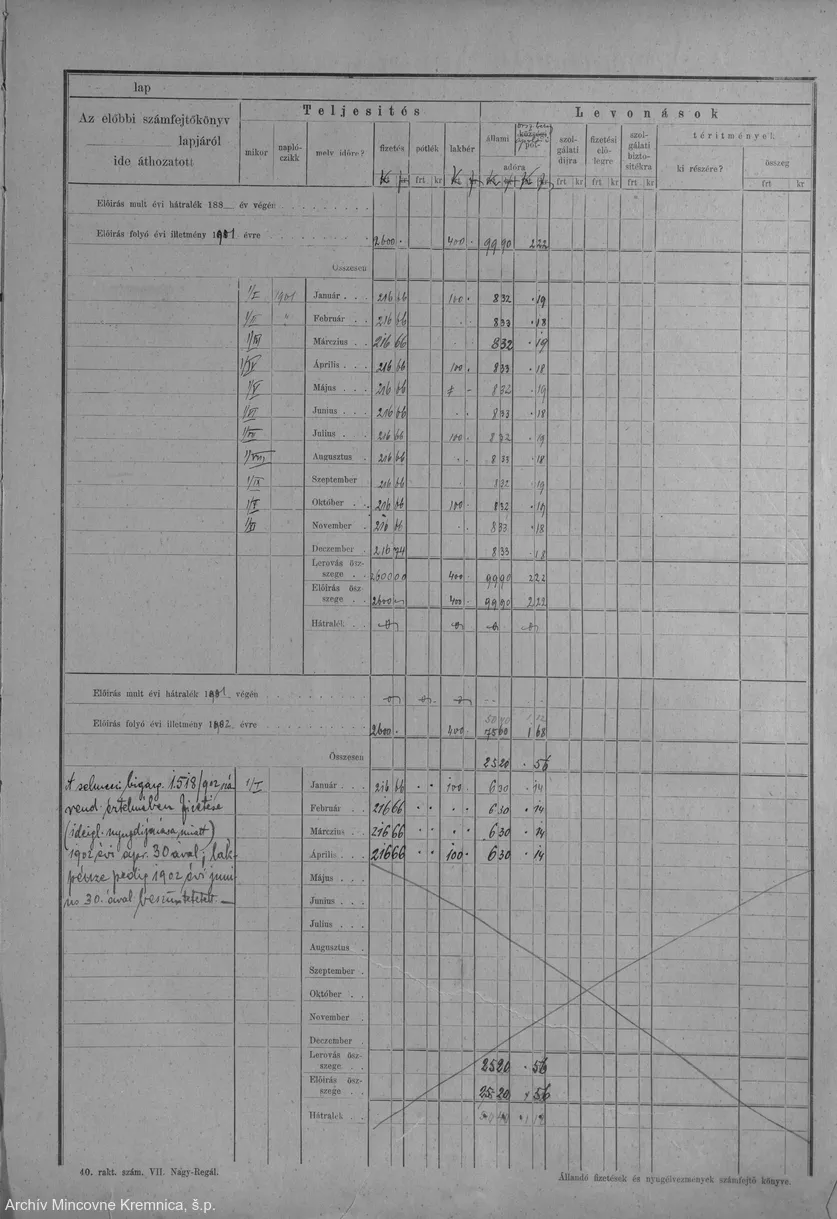 lap
Az előbbi számfejtőkönyv
lapjáról
ide áthozatott
Teljesítés
Levonások
mikor
napló-
czikk
mely időre?
fizetés
pótlék
lakbér
állami
pót-
adóra
szol-
gálati
díjra
fizetési
elő-
legre
szol-
gálati
bizto-
sítékra
térítmények
ki részére?
összeg
frt kr
frt kr frt kr frt kr frt kr
Előirás mult évi hátralék 188 év végén
Előirás folyó évi illetmény 1901 évre 2600 . 400 . 99 90 2 22
Összesen
1/I 1901 Január . . . 216 66 100 . 8 32 . 19
1/II " Február . . 216 66 . . 8 33 . 18
1/III Márczius . . 216 66 . . 8 32 . 19
1/IV Április . . . 216 66 100 . 8 33 . 18
1/V Május . . . 216 66 8 32 . 19
1/VI Junius . . . 216 66 . . 8 33 . 18
1/VII Julius . . 216 66 100 . 8 32 . 19
1/VIII Augusztus . 216 66 . . 8 33 . 18
1/IX Szeptember 216 66 8 32 . 19
1/X Október . . 216 66 100 . 8 32 . 19
1/XI November . 216 66 . . 8 33 . 18
Deczember . 216 74 8 33 . 18
Lerovás ösz-
szege . . 2600 00 400 . 99 90 2 22
Előirás ösz-
szege . . 2600 400 . 99 90 2 22
Hátralék . .
Előirás mult évi hátralék 1901 végén
50 40 1 12
Előirás folyó évi illetmény 1902 évre 2600 . 400 . 75 60 1 68
Összesen 25 20 . 56
A selmeci bigazg. 1518/902 sz.
rend. értelmében fizetése
(ideigl. nyugdíjazása miatt)
1902 évi apr. 30ával; lak-
pénze pedig 1902 évi juni-
us 30.ával beszüntetett.
1/I Január . . . 216 66 . . 100 . 6 30 . 14
Február . . 216 66 . . . . 6 30 . 14
Márczius . . 216 66 . . . . 6 30 . 14
Április . . . 216 66 . . 100 . 6 30 . 14
Május . . .
Junius . . .
Julius . . .
Augusztus .
Szeptember .
Október . .
November .
Deczember .
Lerovás ösz-
szege . . 25 20 . 56
Előirás ösz-
szege . . 25 20 . 56
Hátralék . .
40. rakt. szám. VII. Nagy-Regál.
Állandó fizetések és nyugélvezmények számfejtő könyve.
Archív Mincovne Kremnica, š.p.